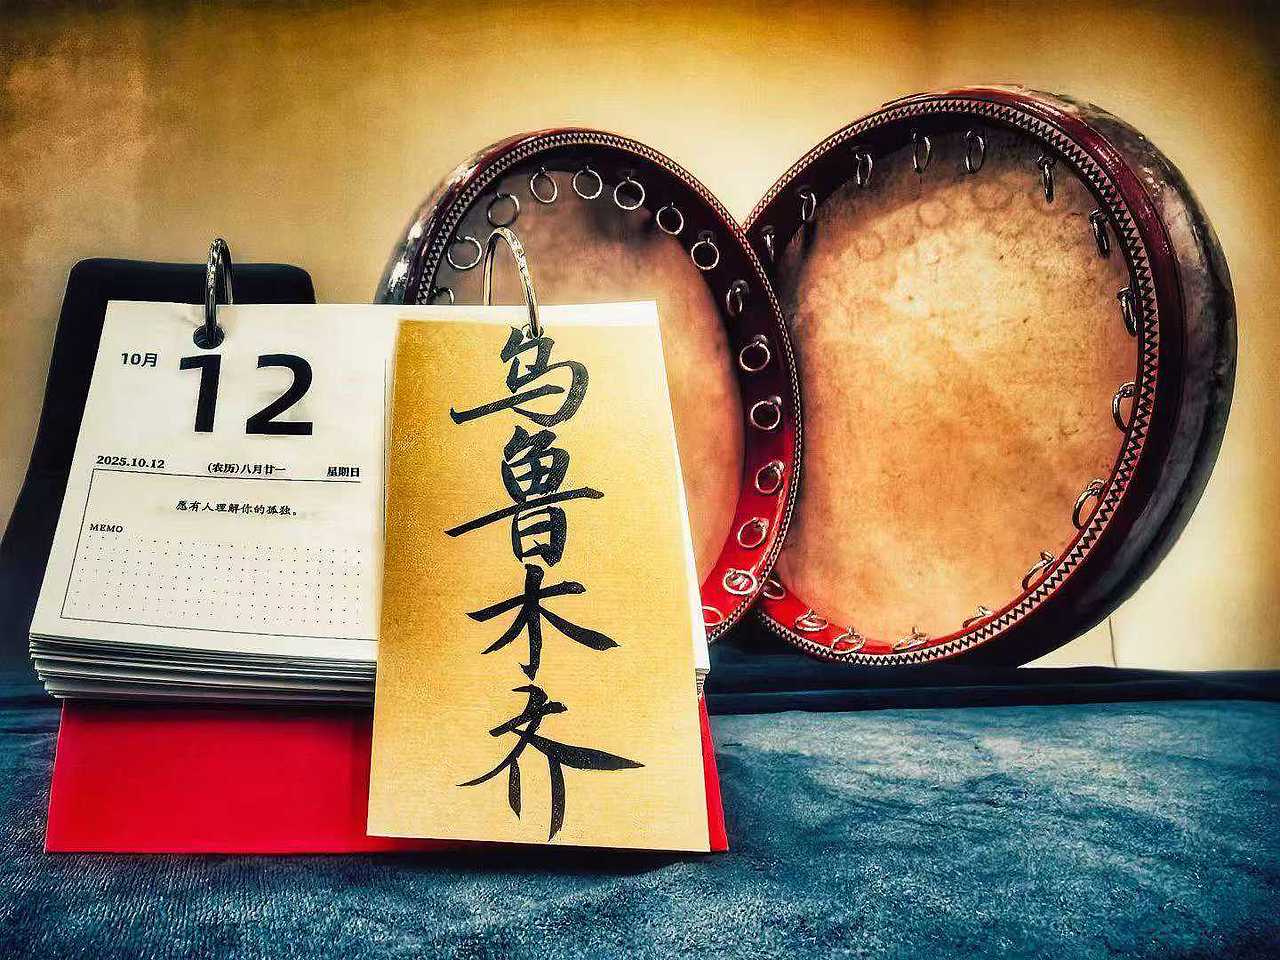 10月
12
2025.10.12 (农历)八月廿一 星期日
愿有人理解你的孤独。
MEMO
乌鲁木齐